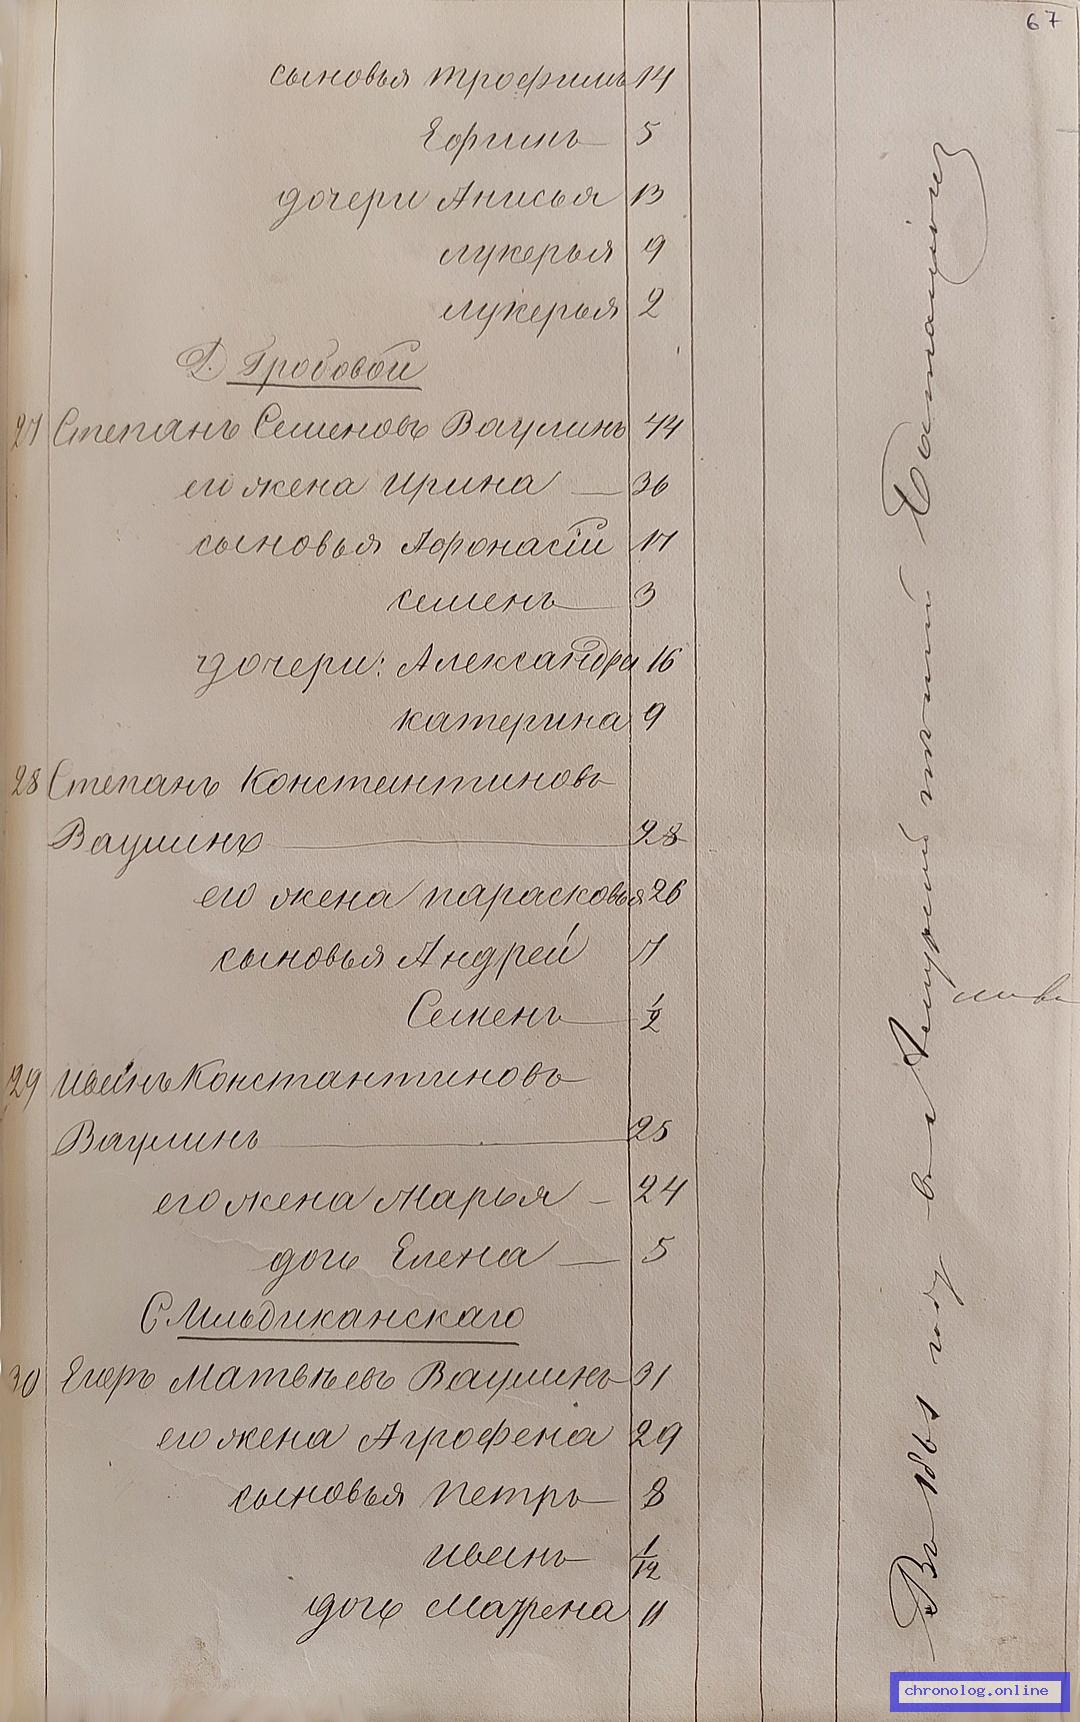 67
сыновья Трофимъ 14
Ефимъ 5
дочери Анисья 13
Лукерья 9
Лукерья 2
Д. Гробовой
27 Степанъ Семеновъ Ваулинъ 44
его жена Ирина 36
сыновья Афонасій 17
Семенъ 3
дочери: Александра 16
Катерина 9
28 Степанъ Константиновъ
Ваулинъ 28
его жена Парасковья 26
сыновья Андрей 7
Семенъ 1/2
29 Иванъ Константиновъ
Ваулинъ 25
его жена Марья 24
дочь Елена 5
С Мильдиканскаго
30 Егоръ Матвѣевъ Ваулинъ 31
его жена Агрофена 29
сыновья Петръ 8
Иванъ 1/12
дочь Матрена 11
Въ 1865 году въ Амурскій пѣшій Баталіонъ
chronolog.online